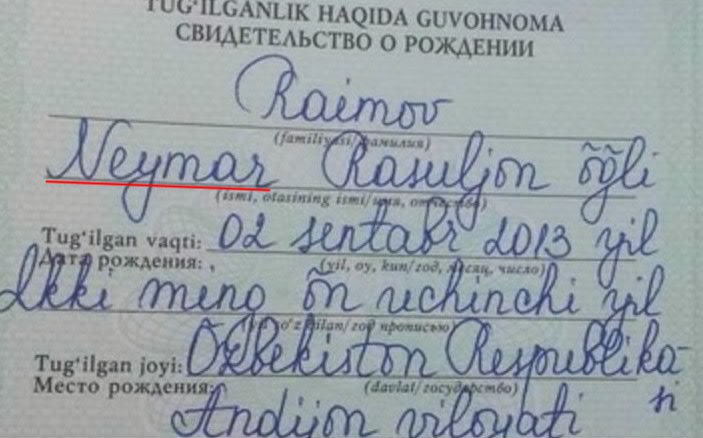 TUG‘ILGANLIK HAQIDA GUVOHNOMA
СВИДЕТЕЛЬСТВО О РОЖДЕНИИ
Raimov
(familiyasi/фамилия)
Neymar Rasuljon õg̃li
(ismi, otasining ismi/имя, отчество)
Tug‘ilgan vaqti: 02 sentabr 2013 yil
Дата рождения: (yil, oy, kun/год, месяц, число)
Ikki ming õn uchinchi yil
so‘z bilan/год прописью)
Tug‘ilgan joyi: Õzbekiston Respublika-
Место рождения: (davlat/государство) si
Andijon viloyati